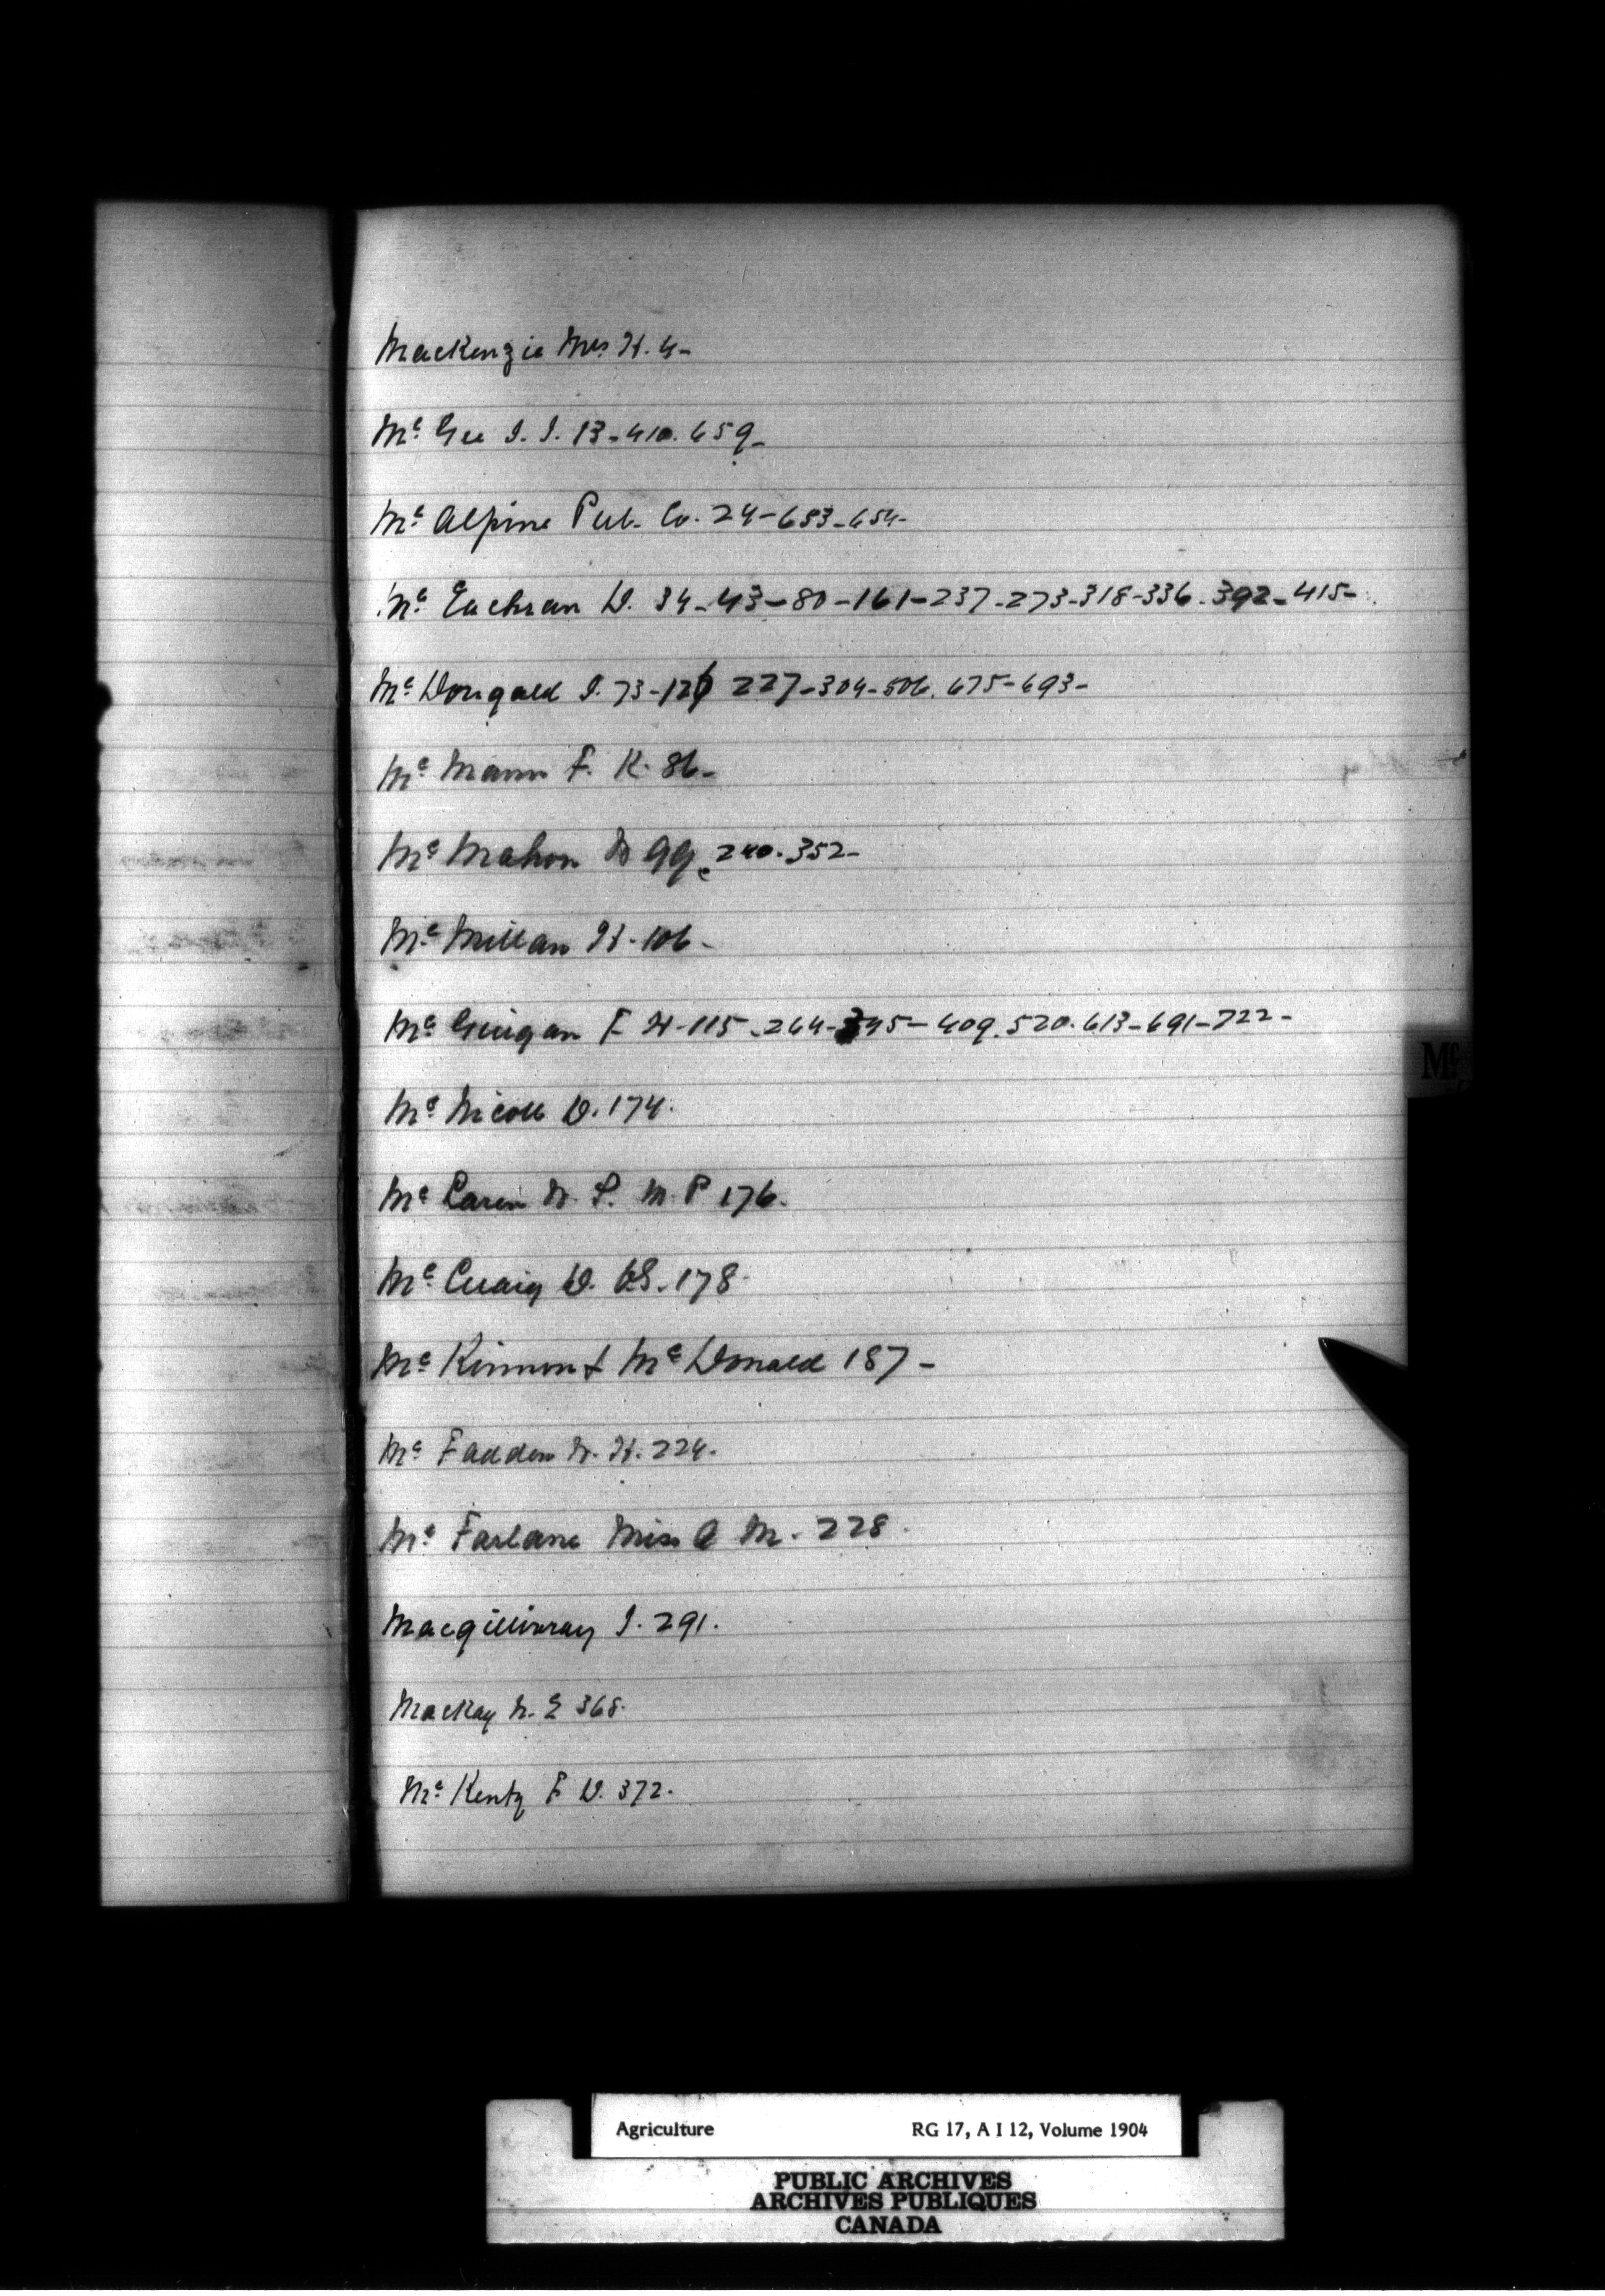 MacKenzie Mrs H. 4-
Mc Gee J. J. 13-410. 659-
Mc Alpine Pub. Co. 24-653-654-
Mc Eachran D. 34-43-80-161-237-273-318-336-392-415-
Mc Dougald J. 73-126 227-304-506. 675-693-
Mc Mann F. K. 86-
Mc Mahon W 99. 240. 352-
Mc Millan H. 106-
Mc Guigan F H-115-264-345-409. 520. 613-691-722-
Mc Nicoll D. 174.
Mc Laren W. S. M. P 176.
Mc Cuaig D. 178.
Mc Kinnon & Mc Donald 187-
Mc Fadden W. H. 224.
Mc Farlane Miss A M. 228.
Macgillivray J. 291.
MacKay N. E 368.
Mc Kenty F D. 372.
Mc
Agriculture RG 17, A I 12, Volume 1904
PUBLIC ARCHIVES
ARCHIVES PUBLIQUES
CANADA